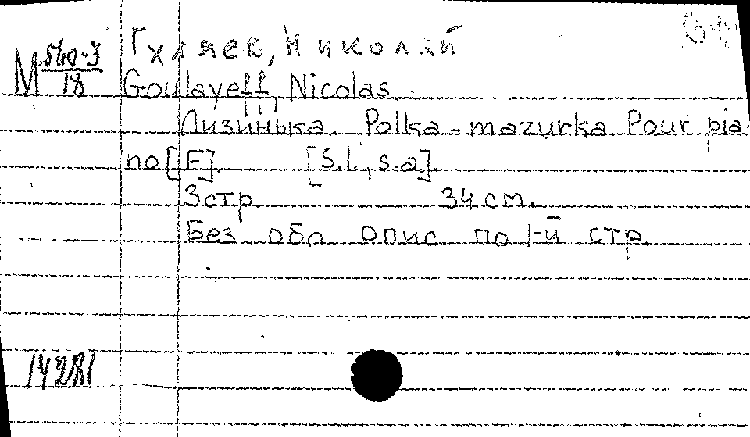 Гуляев, Николай
М 560-3/18
Goulayeff, Nicolas.
Лизинька. Polka-mazurka. Pour pia
no [F]. [S.l., s.a].
3 стр. 34 см.
Без обл. опис. по 1-й стр.
14281